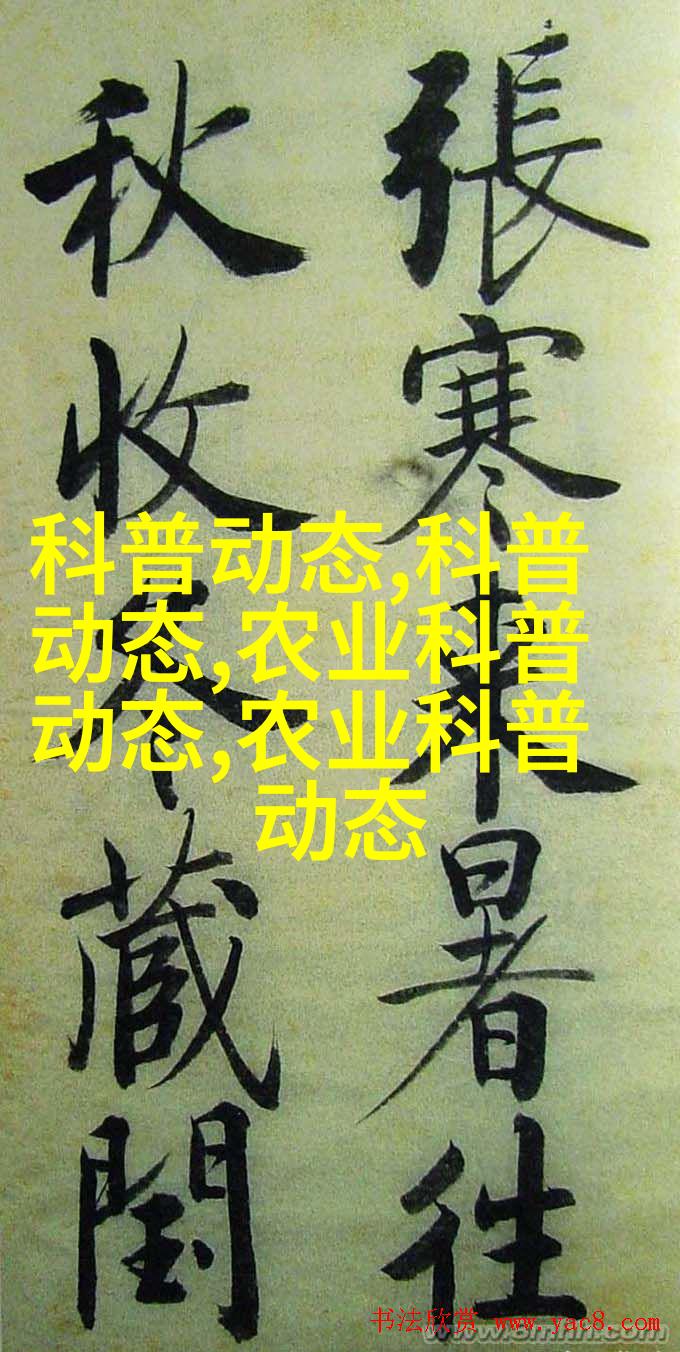 張寒來暑往
秋收冬蔵閏
科普动态,科普
动态,农业科普
动态,农业科普
动态
书法欣赏 www.yac8.com